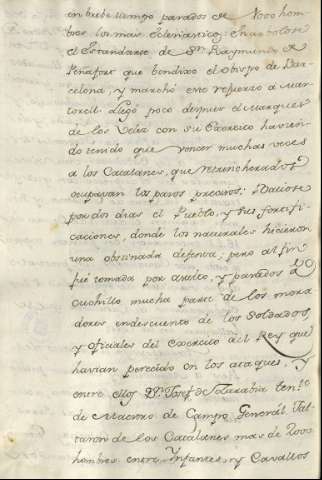 en breve tiempo parados de 2000 hom-
bres los mas Eclesiasticos; Enarbolose
el Estandarte de Sn. Raymundo de
Peñafort que bendixo el obispo de Bar-
celona, y marchó este refuerzo a Mar-
torell. Llegó poco despues el Marques
de los Velez con su Exercito havien-
do tenido que vencer muchas veces
a los Catalanes, que atrincherados
ocupavan los pasos precisos;
por dos dias el Pueblo, y sus fortifi-
caciones, donde los naturales hicieron
una obstinada defensa; pero al fin
fué tomada por asalto, y pasados à
cuchillo mucha parte de los mora-
dores en descuento de los Soldados,
y oficiales del Exercito del Rey que
havian perecido en los ataques, y
entre ellos Dn. Josef de Sarabia tente.
de Maestro de Campo General. Fal-
taron de los Catalanes mas de 2000
hombres entre Infantes, y Cavallos